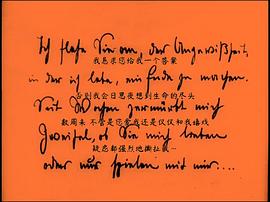 Ich flehe Sie an, der Ungewißheit,
我恳求您给我一个答案
in der ich lebe, ein Ende zu machen.
否则我会日思夜想到生命的尽头
Seit Wochen zermürbt mich
数周来 不管是它爱我还是仅仅和我嬉戏
Zweifel, ob Sie mich lieben
疑惑都强烈地撕扯我~
oder nur spielen mit mir....